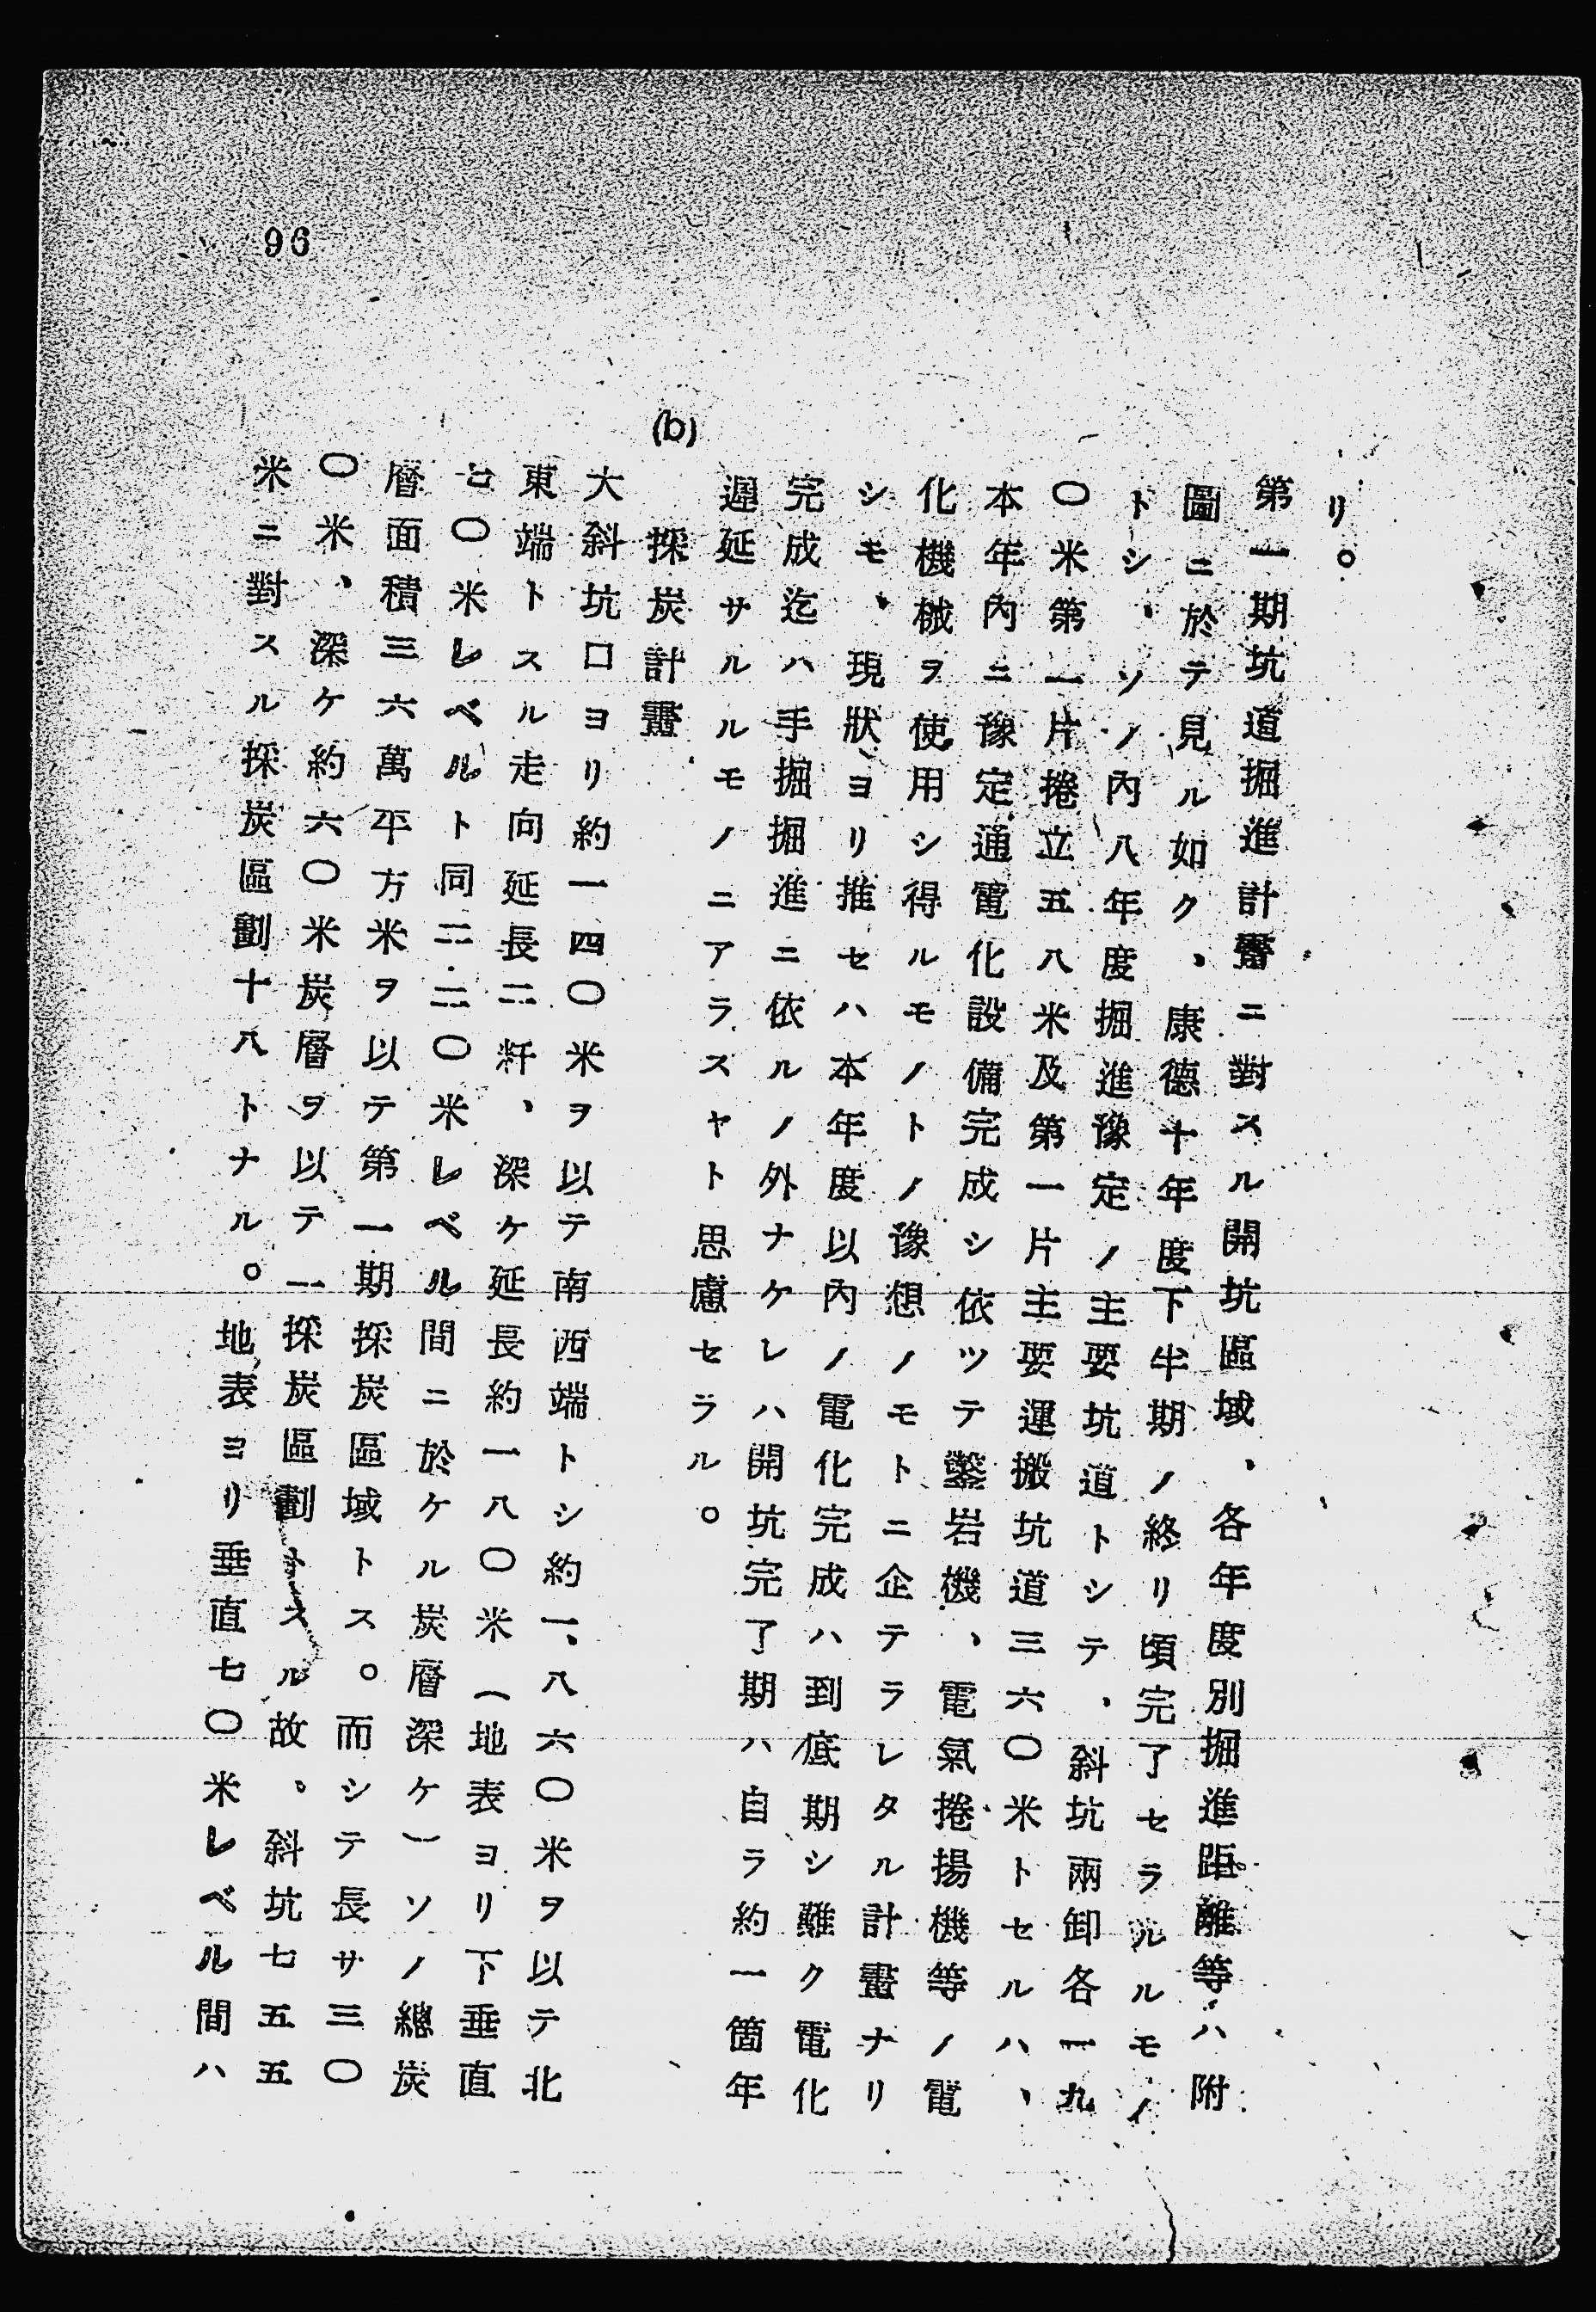 96
リ。
第一期坑道掘進計畫ニ對スル開坑區域、各年度別掘進距離等ハ附
圖ニ於テ見ル如ク、康德十年度下半期ノ終リ頃完了セラルルモノ
トシ、ソノ內八年度掘進豫定ノ主要坑道トシテ、斜坑兩卸各一九
〇米第一片捲立五八米及第一片主要運搬坑道三六〇米トセルハ、
本年內ニ豫定通電化設備完成シ依ツテ鑿岩機、電氣捲揚機等ノ電
化機械ヲ使用シ得ルモノトノ豫想ノモトニ企テラレタル計畫ナリ
シモ、現狀ヨリ推セハ本年度以內ノ電化完成ハ到底期シ難ク電化
完成迄ハ手掘掘進ニ依ルノ外ナケレハ開坑完了期ハ自ラ約一箇年
遲延サルルモノニアラスヤト思慮セラル。
(b) 採炭計畫
大斜坑口ヨリ約一四〇米ヲ以テ南西端トシ約一、八六〇米ヲ以テ北
東端トスル走向延長二粁、深ケ延長約一八〇米（地表ヨリ下垂直
七〇米レベルト同二二〇米レベル間ニ於ケル炭層深ケ）ソノ總炭
層面積三六萬平方米ヲ以テ第一期採炭區域トス。而シテ長サ三〇
〇米、深ケ約六〇米炭層ヲ以テ一採炭區劃トスル故、斜坑七五五
米ニ對スル採炭區劃十八トナル。地表ヨリ垂直七〇米レベル間ハ